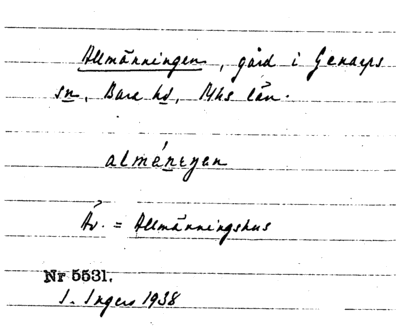 Allmänningen, gård i Genarps
sn, Bara hd, Mhs län.
almäneŋen
Äv. = Allmänningshus
Nr 5531.
I. Ingers 1938